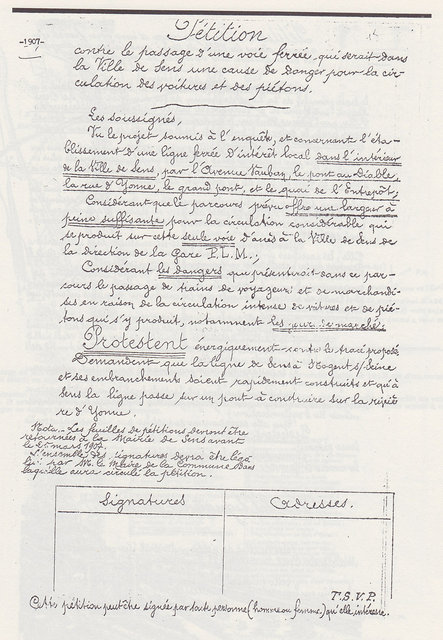 -1907-
Pétition
contre le passage d'une voie ferrée qui serait dans
la Ville de Sens une cause de danger pour la cir-
culation des voitures et des piétons.
Les soussignés,
Vu le projet soumis à l'enquête, et concernant l'éta-
blissement d'une ligne ferrée d'intérêt local dans l'intérieur
de la Ville de Sens, par l'Avenue Vauban, le pont au Diable,
la rue d'Yonne, le grand pont, et le quai de l'Entrepôt;
Considérant que le parcours prévu offre une largeur à
peine suffisante pour la circulation considérable qui
se produit sur cette seule voie d'accès à la Ville de Sens de
la direction de la Gare P.L.M.;
Considérant les dangers que présenterait dans ce par-
cours le passage de trains de voyageurs et de marchandi-
ses en raison de la circulation intense de voitures et de pié-
tons qui s'y produit, notamment les jours de marché;
Protestent énergiquement contre le tracé proposé,
Demandent que la ligne de Sens à Nogent s/Seine
et ses embranchements soient rapidement construits et qu'à
Sens la ligne passe sur un pont à construire sur la riviè-
re d'Yonne.
Nota.- Les feuilles de pétitions devront être
retournées à la Mairie de Sens avant
le mars 1907.
L'ensemble des signatures devra être léga-
lisé par M. le Maire de la Commune dans
laquelle aura circulé la pétition.
Signatures
Adresses.
T.S.V.P.
Cette pétition peut être signée par toute personne (homme ou femme) qu'elle intéresse.